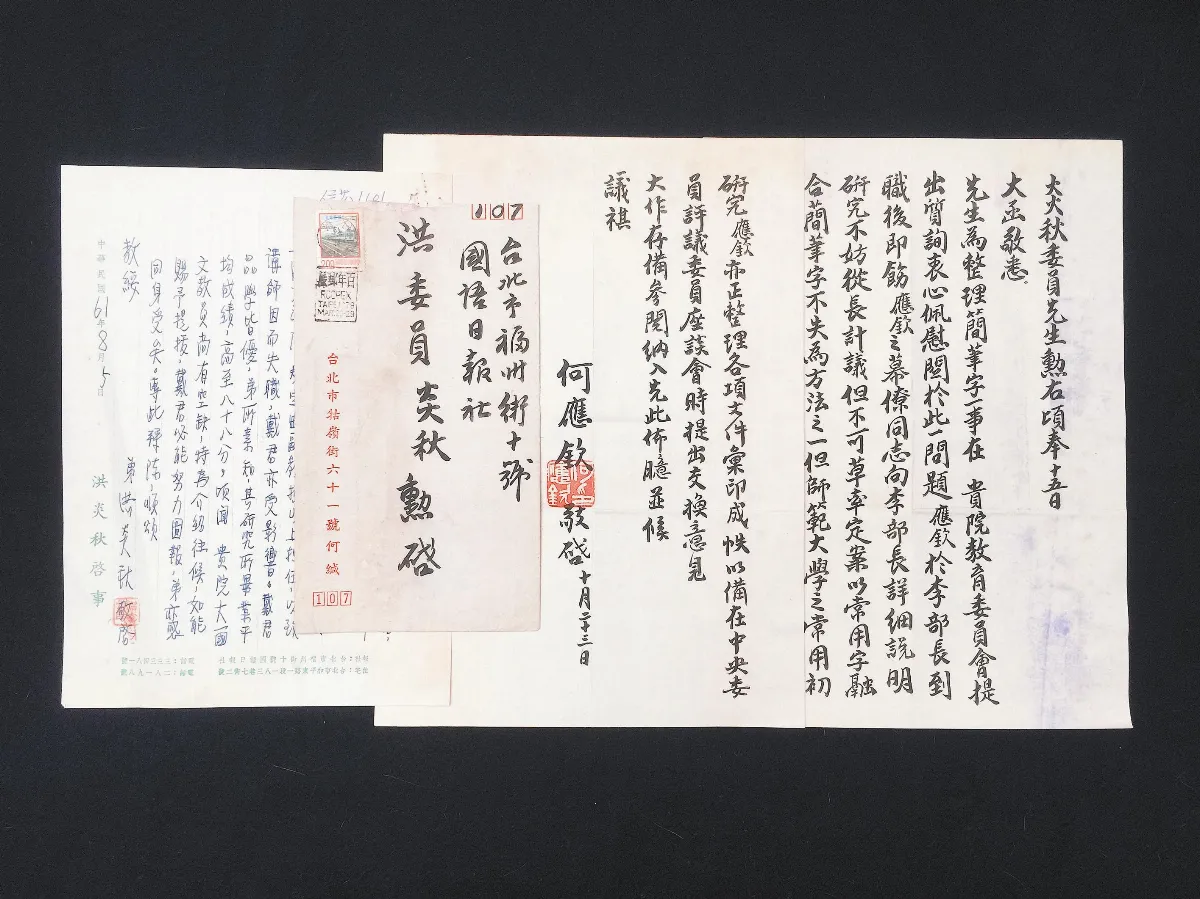 炎秋委員先生勳右頃奉十五日
大函敬悉
先生為整理簡筆字一事在 貴院教育委員會提
出質詢衷心佩慰關於此一問題應欽於李部長到
職後即飭應欽之幕僚同志向李部長詳細說明
研究不妨從長計議但不可草率定案以常用字融
合簡筆字不失為方法之一但師範大學之常用初
研究應欽亦正整理各項文件彙印成帙以備在中央委
員評議委員座談會時提出交換意見
大作存備參閱納入先此佈臆並候
議祺
何應欽敬啟 十月二十三日
107
台北市福州街十號
國語日報社
洪委員炎秋勳啟
台北市牯嶺街六十一號何緘
107
200
百年郵展
ROCPEX
TAIPEI '78
MAR. 20-29
講師因而失職,戴君亦受影響。戴君
品學皆優,弟所素知,其研究所畢業平
均成績,高至八十八分,頃聞 貴院大一國
文教員尚有空缺,特為介紹往候,如能
賜予提拔,戴君必能努力圖報,弟亦感
同身受矣。專此拜陳,順頌
教綏
弟洪炎秋敬啓
中華民國61年8月5日
洪炎秋啓事
社址:台北市福州街十號國語日報社